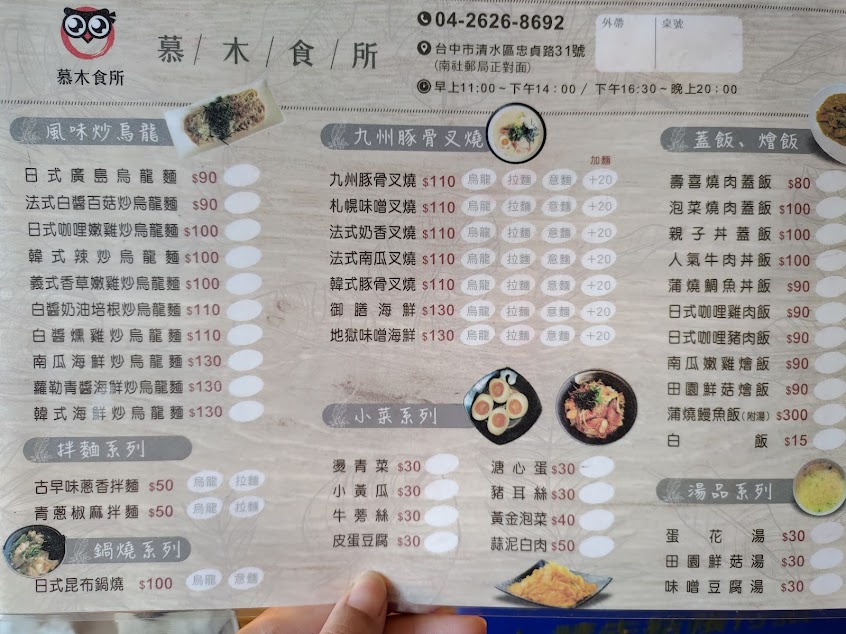 慕木食所
慕/木/食/所
04-2626-8692
台中市清水區忠貞路31號
(南社郵局正對面)
早上11:00~下午14:00/下午16:30~晚上20:00
外帶 桌號
風味炒烏龍
日式廣島烏龍麵 $90
法式白醬百菇炒烏龍麵 $90
日式咖哩嫩雞炒烏龍麵 $100
韓式辣炒烏龍麵 $100
義式香草嫩雞炒烏龍麵 $100
白醬奶油培根炒烏龍麵 $110
白醬燻雞炒烏龍麵 $110
南瓜海鮮炒烏龍麵 $130
蘿勒青醬海鮮炒烏龍麵 $130
韓式海鮮炒烏龍麵 $130
拌麵系列
古早味蔥香拌麵 $50 烏龍 拉麵
青蔥椒麻拌麵 $50 烏龍 拉麵
鍋燒系列
日式昆布鍋燒 $100 烏龍 意麵
九州豚骨叉燒
加麵
九州豚骨叉燒 $110 烏龍 拉麵 意麵 +20
札幌味噌叉燒 $110 烏龍 拉麵 意麵 +20
法式奶香叉燒 $110 烏龍 拉麵 意麵 +20
法式南瓜叉燒 $110 烏龍 拉麵 意麵 +20
韓式豚骨叉燒 $110 烏龍 拉麵 意麵 +20
御膳海鮮 $130 烏龍 拉麵 意麵 +20
地獄味噌海鮮 $130 烏龍 拉麵 意麵 +20
小菜系列
燙青菜 $30
小黃瓜 $30
牛蒡絲 $30
皮蛋豆腐 $30
溏心蛋 $30
豬耳絲 $30
黃金泡菜 $40
蒜泥白肉 $50
蓋飯、燴飯
壽喜燒肉蓋飯 $80
泡菜燒肉蓋飯 $100
親子丼蓋飯 $100
人氣牛肉丼飯 $100
蒲燒鯛魚丼飯 $90
日式咖哩雞肉飯 $90
日式咖哩豬肉飯 $90
南瓜嫩雞燴飯 $90
田園鮮菇燴飯 $90
蒲燒鰻魚飯(附湯) $300
白飯 $15
湯品系列
蛋花湯 $30
田園鮮菇湯 $30
味噌豆腐湯 $30